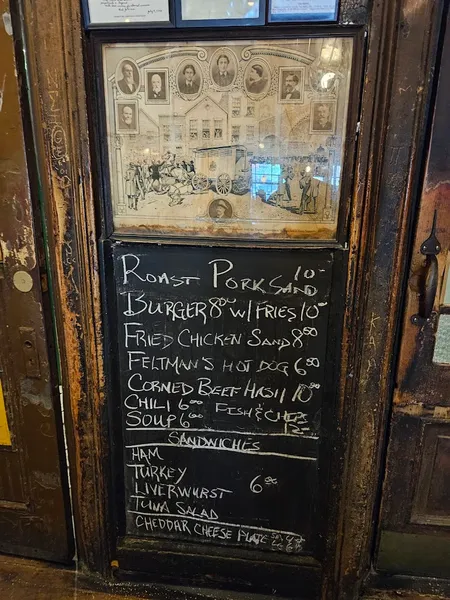 ROAST PORK SAND 10-
BURGER 8.00 W/ FRIES 10.00
FRIED CHICKEN SAND 8.00
FELTMAN'S HOT DOG 6.00
CORNED BEEF HASH 10.00
CHILI 6.00 FISH & CHIPS
SOUP 6.00
SANDWICHES
HAM
TURKEY
LIVERWURST 6.00
TUNA SALAD
CHEDDAR CHEESE PLATE